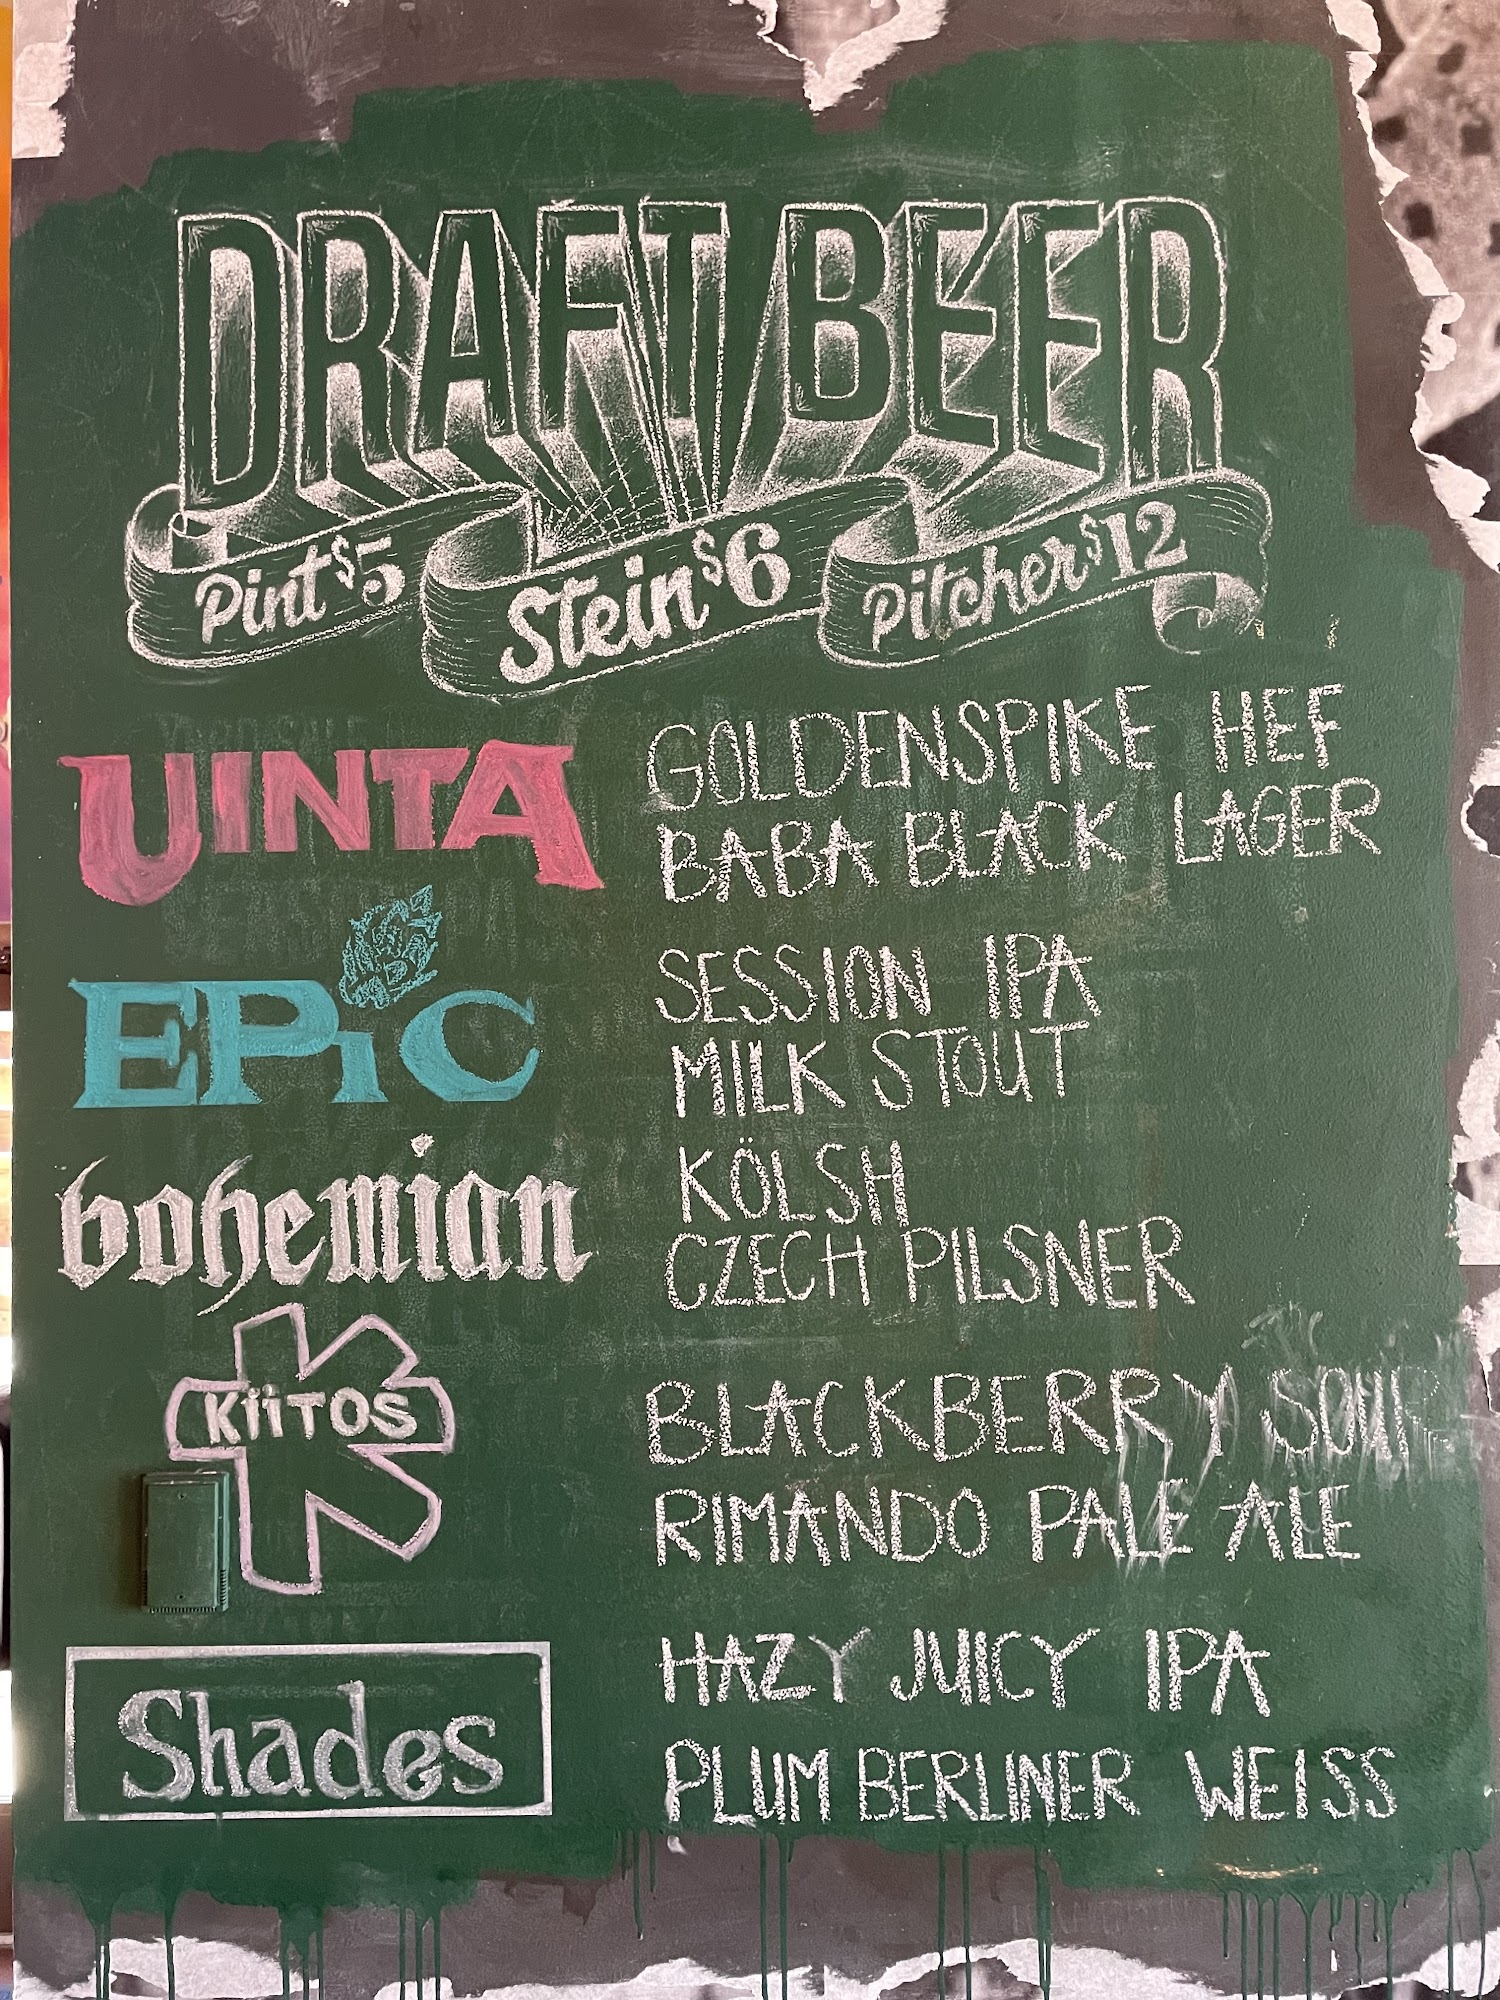 DRAFT BEER
Pint $5 Stein $6 Pitcher $12
UINTA
GOLDENSPIKE HEF
BABA BLACK LAGER
EPiC
SESSION IPA
MILK STOUT
bohemian
KÖLSH
CZECH PILSNER
KiiTOS
BLACKBERRY SOUR
RIMANDO PALE ALE
Shades
HAZY JUICY IPA
PLUM BERLINER WEISS